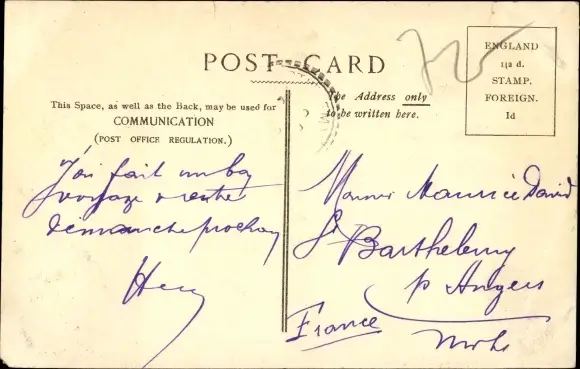 POST CARD
ENGLAND
1/2 d.
STAMP.
FOREIGN.
1d
This Space, as well as the Back, may be used for
COMMUNICATION
(POST OFFICE REGULATION.)
The Address only
to be written here.
J'ai fait un bon
voyage & rentre
dimanche prochain
Monsieur Maurice David
St Barthelemy
p Angers
France